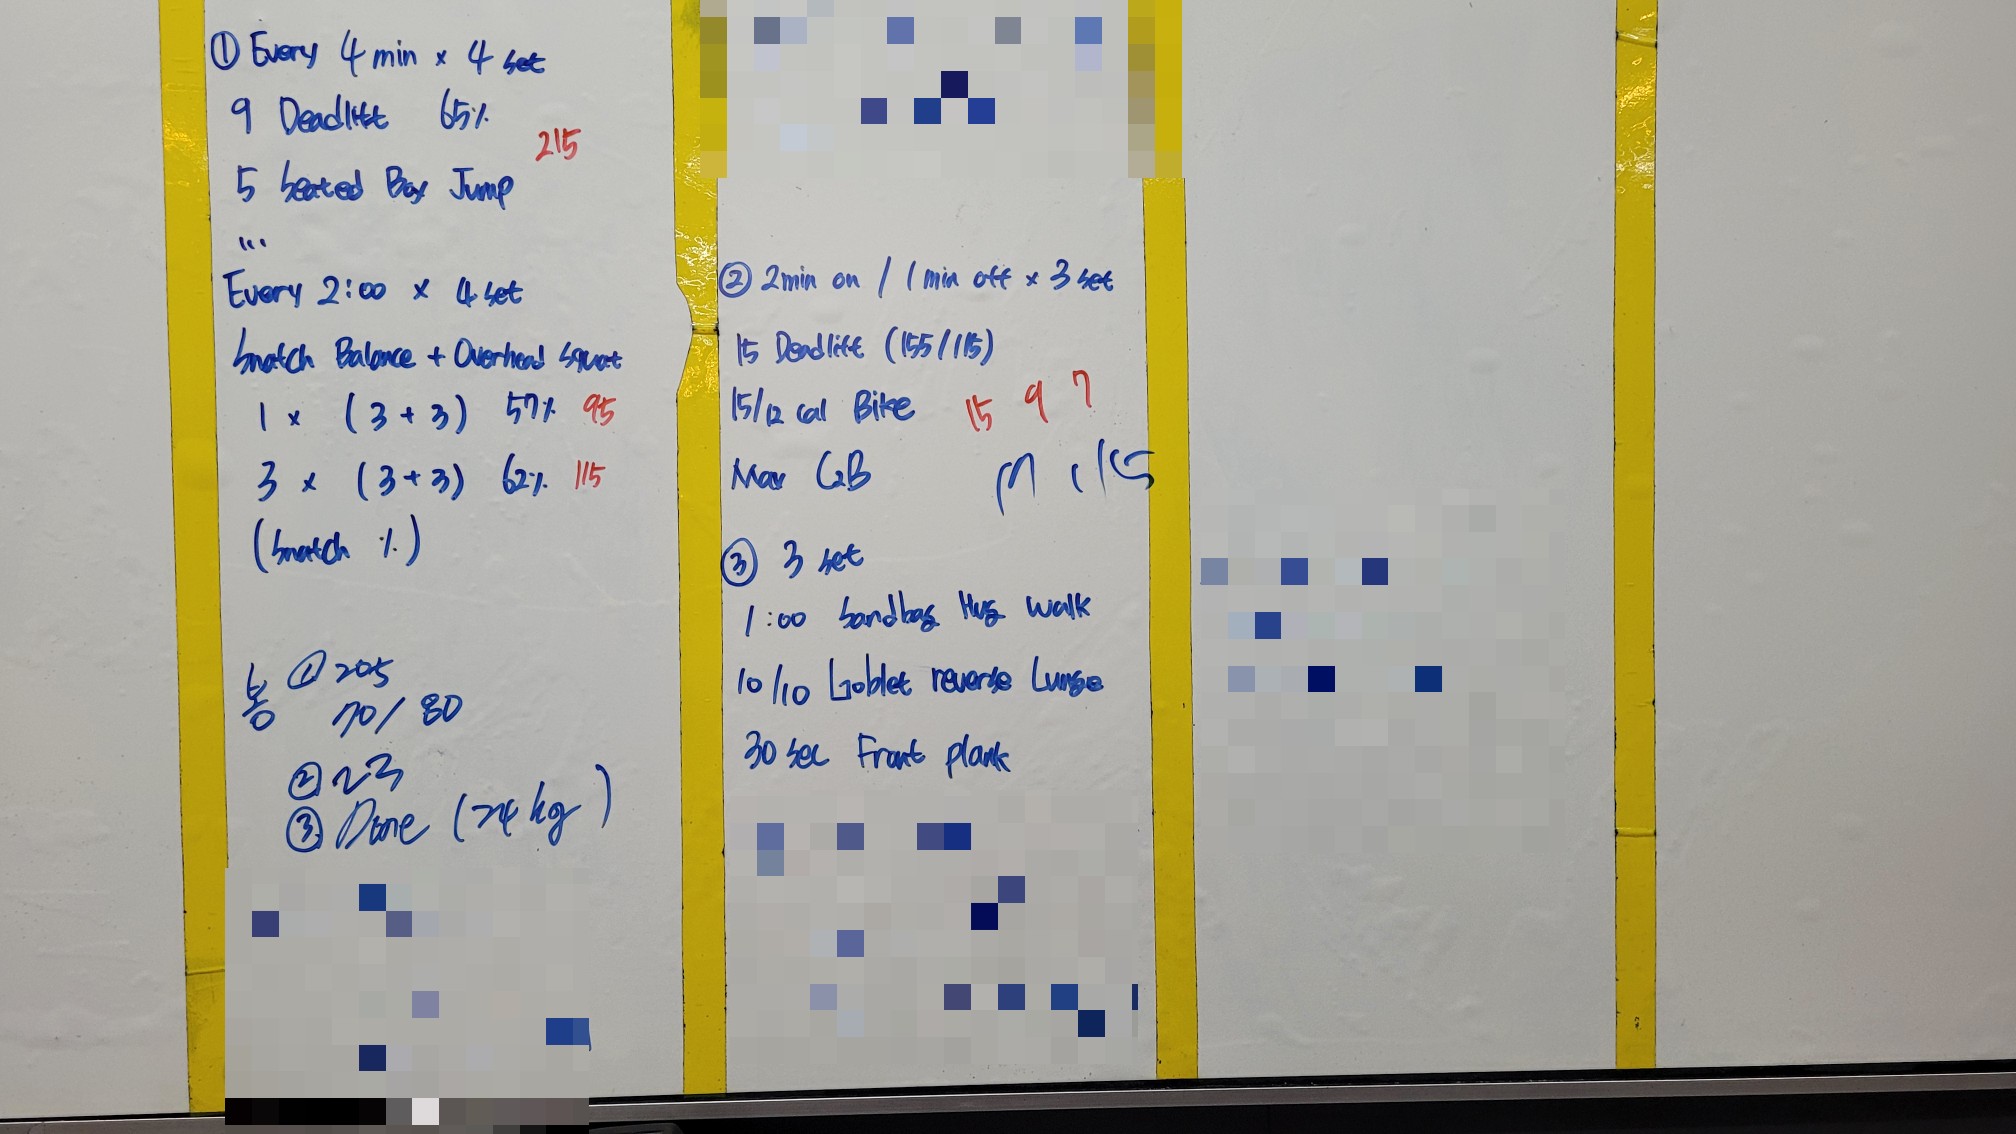 ① Every 4 min × 4 set
9 Deadlift 65%
215
5 Seated Box Jump
"'
Every 2:00 × 4 set
Snatch Balance + Overhead Squat
1 × (3+3) 57% 95
3 × (3+3) 62% 115
(Snatch %)
봉 ① 205
70/80
② 23
③ Done (24kg)
② 2min on / 1min off × 3 set
15 Deadlift (155/115)
15/12 Cal Bike 15 9 7
Max
③ 3 set
1:00 Sandbag Hug walk
10/10 Goblet reverse Lunge
30 sec Front plank